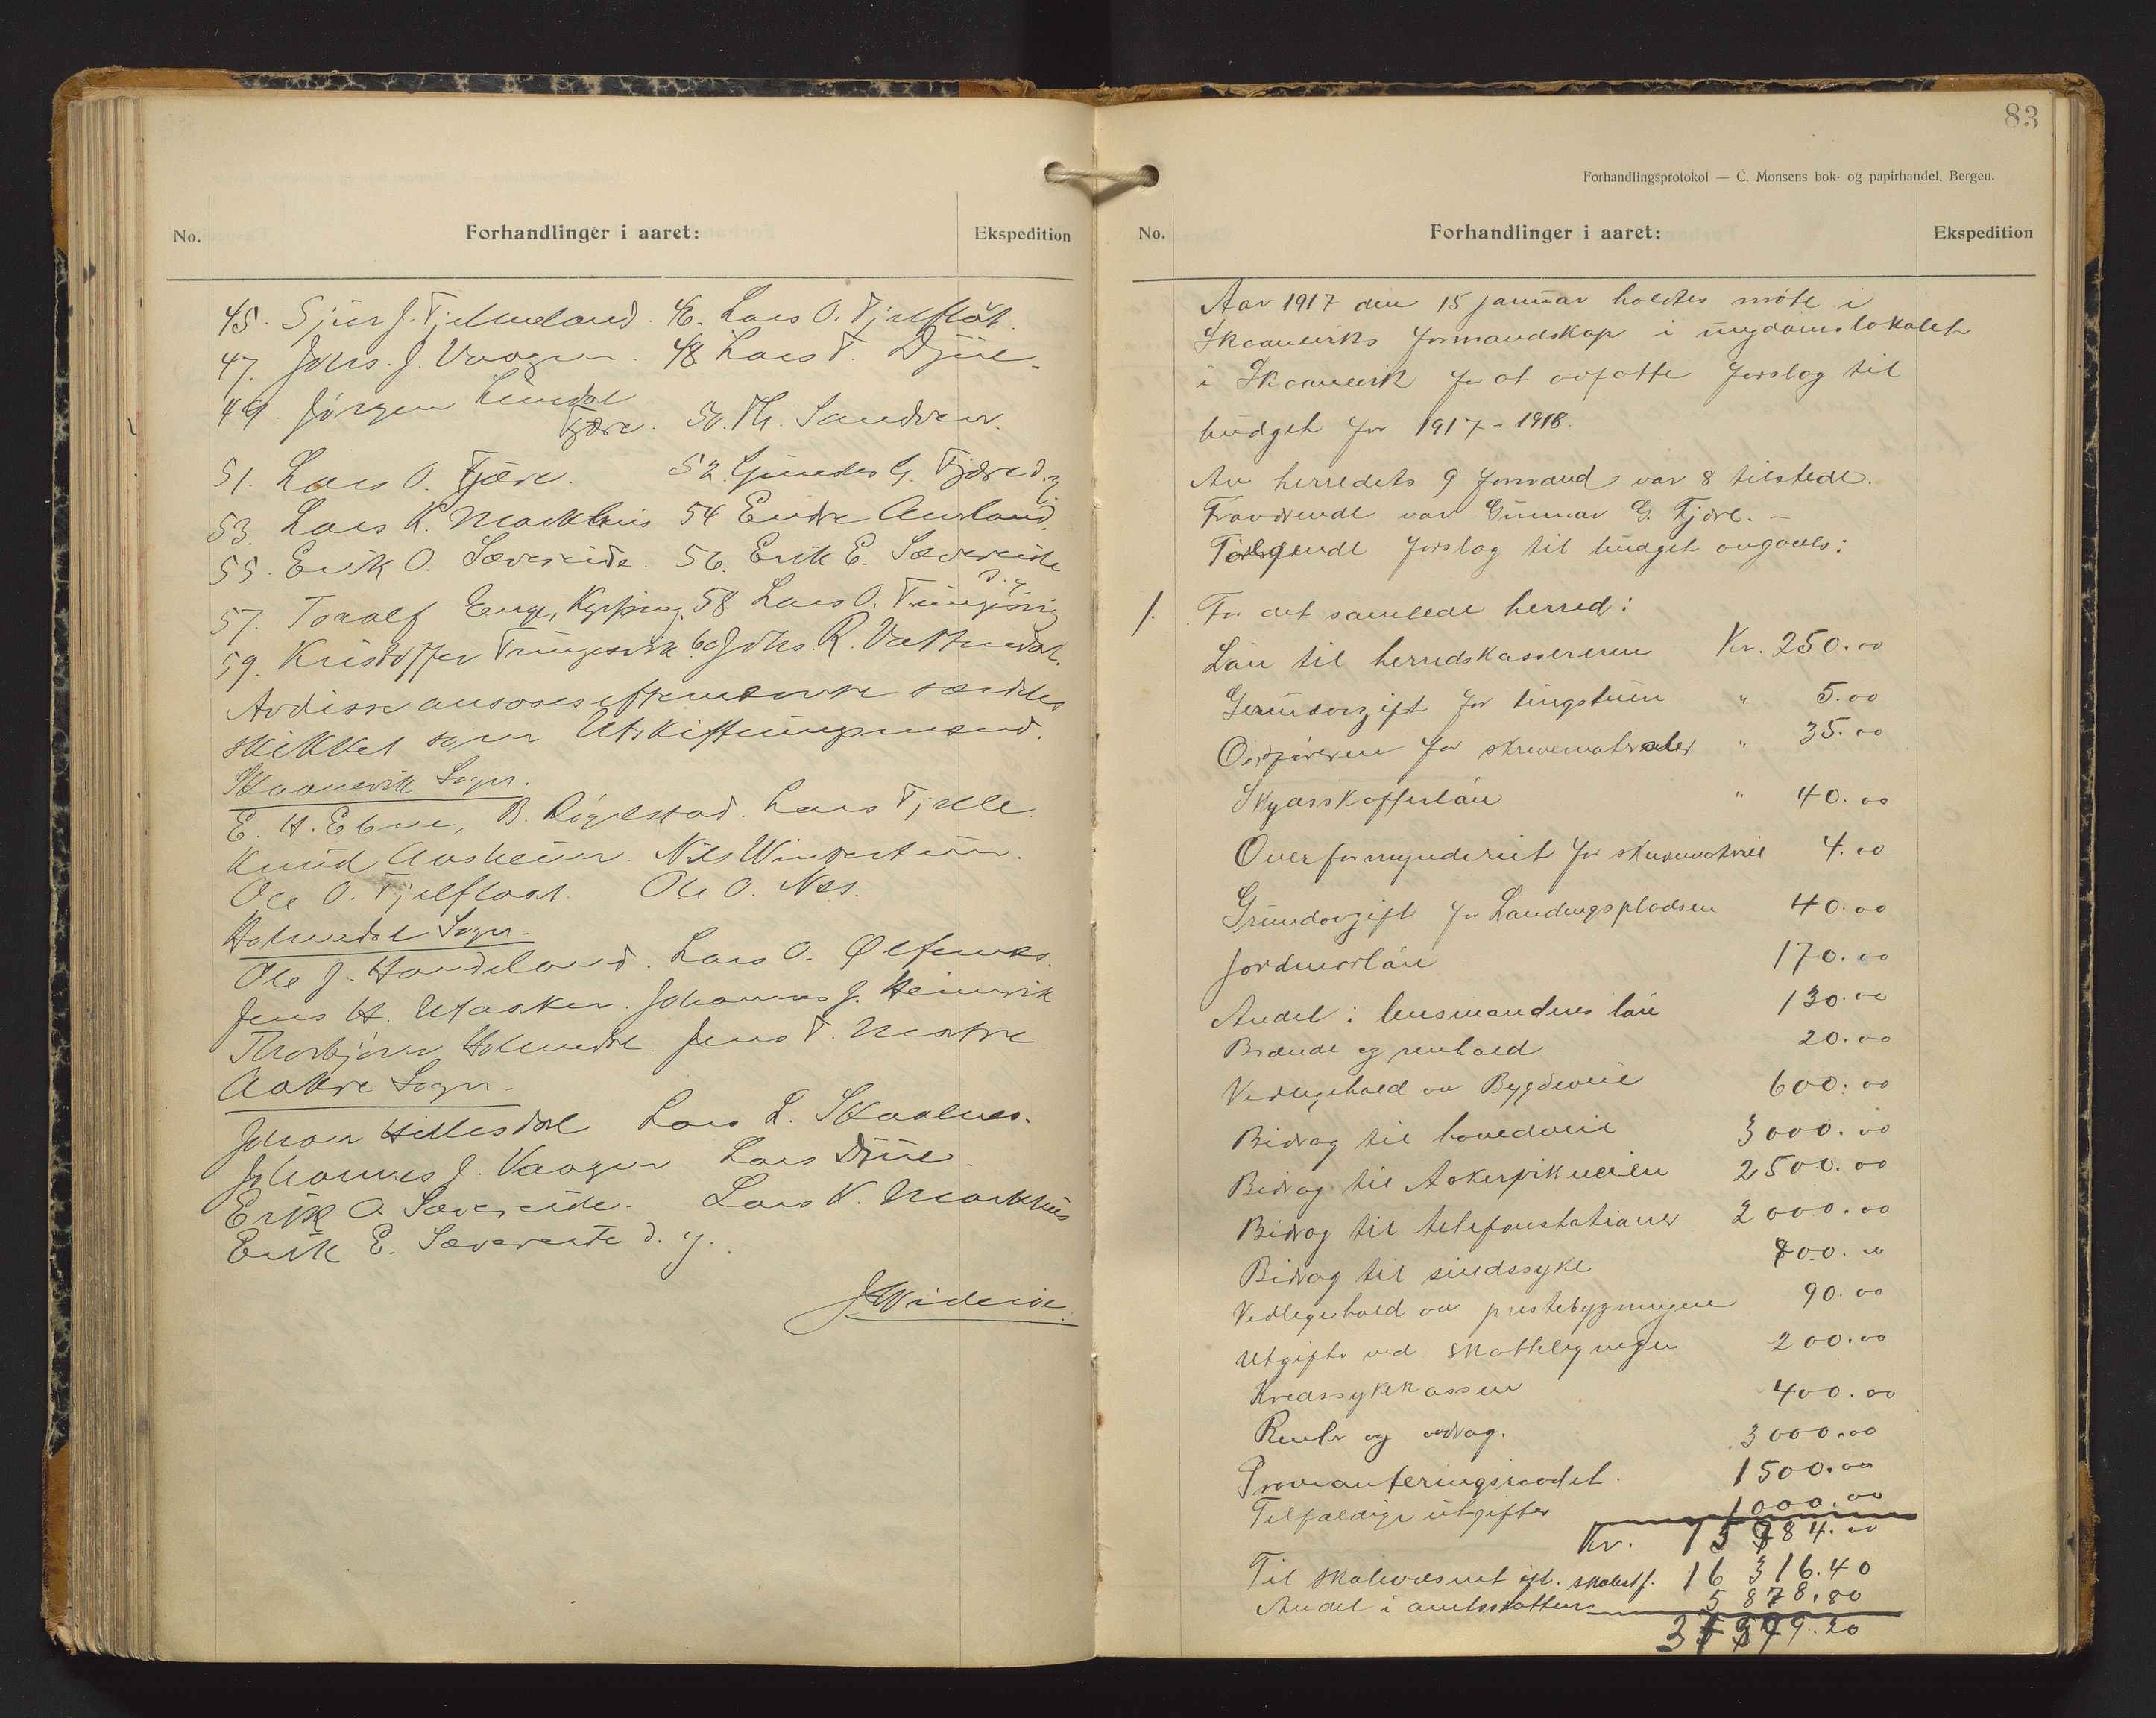 No.
Forhandlinger i aaret:
Ekspedition
45. Sjur J. Tjelmeland. 46. Lars O. Tjelflåt.
47. Johs. J. Vaagen. 48 Lars T. Djue.
49. Jørgen Lundal
Fjære. 50. Th. Sandven.
51. Lars O. Fjære. 52. Gunder G. Fjære d.y.
53. Lars K. Markhus 54 Endre Aurland.
55. Erik O. Sævereide. 56. Erik E. Sævereide
d.y.
57. Toralf Enge, Kyrping. 58. Lars O. Tungesvig
59. Kristoffer Tungesvik. 60 Johs. R. Vattnedal.
Av disse ansaaes efternævnte særdeles
skikket som Utskiftningsmænd.
Skaanevik Sogn.
E. H. Ebne, B. Røgelstad. Lars Tjelle.
Knud Aasheim. Nils Windestein.
Ole O. Tjelflaat. Ole O. Næs.
Holmedal Sogn.
Ole J. Handeland. Lars O. Ølfernes.
Jens H. Utaaker. Johannes J. Heimvik
Thorbjørn Holmedal. Jens T. Matre.
Aakre Sogn.
Johan Hillesdal Lars L. Skaalnes.
Johannes J. Vaagen Lars Djue.
Erik O. Sævereide. Lars K. Markhus
Erik E. Sævereide d. y.
83
Forhandlingsprotokol — C. Monsens bok- og papirhandel, Bergen.
No.
Forhandlinger i aaret:
Ekspedition
Aar 1917 den 15 januar holdtes møte i
Skaaneviks formandskap i ungdomslokalet
i Skaanevik for at avfatte forslag til
budget for 1917-1918.
Av herredets 9 formænd var 8 tilstede.
Fraværende var Gunnar G. Fjære. -
Følgende forslag til budget avgaves:
1. For det samlede herred:
Løn til herredskassereren Kr. 250.00
Grundavgift for tingstuen " 5.00
Ordføreren for skrivematrialer " 35.00
Skydsskafferløn " 40.00
Overformynderiet for skrivematriel 4.00
Grundavgift for Landingspladsen 40.00
Jordmorløn 170.00
Andel i lensmandens løn 130.00
Brænde og renhold 20.00
Vedlikehold av Bygdeveie 600.00
Bidrag til hovedveie 3000.00
Bidrag til Aakervikveien 2500.00
Bidrag til telefonstationer 2000.00
Bidrag til sindssyke 800.00
Vedlikehold av prestebygningen 90.00
Utgifte ved skatteligningen 200.00
Kredssykekassen 400.00
Rente og avdrag. 3000.00
Provianteringsraadet. 1500.00
Tilfældige utgifter 1000.00
Kr. 15 784.00
Til skolevæsnet ifl. skolestf. 16 316.40
Andel i amtsskatten 5 878.80